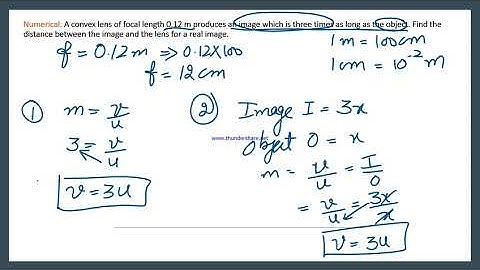 Numerical. A convex lens of focal length 0.12 m produces an image which is three times as long as the object. Find the
distance between the image and the lens for a real image.
f = 0.12 m ⇒ 0.12×100
f = 12 cm
1 m = 100 cm
1 cm = 10⁻² m
① m = v/u
3 = v/u
v = 3u
② Image I = 3x
www.thundershare.net
Object O = x
m = v/u = I/O
= v/u = 3x/x
v = 3u